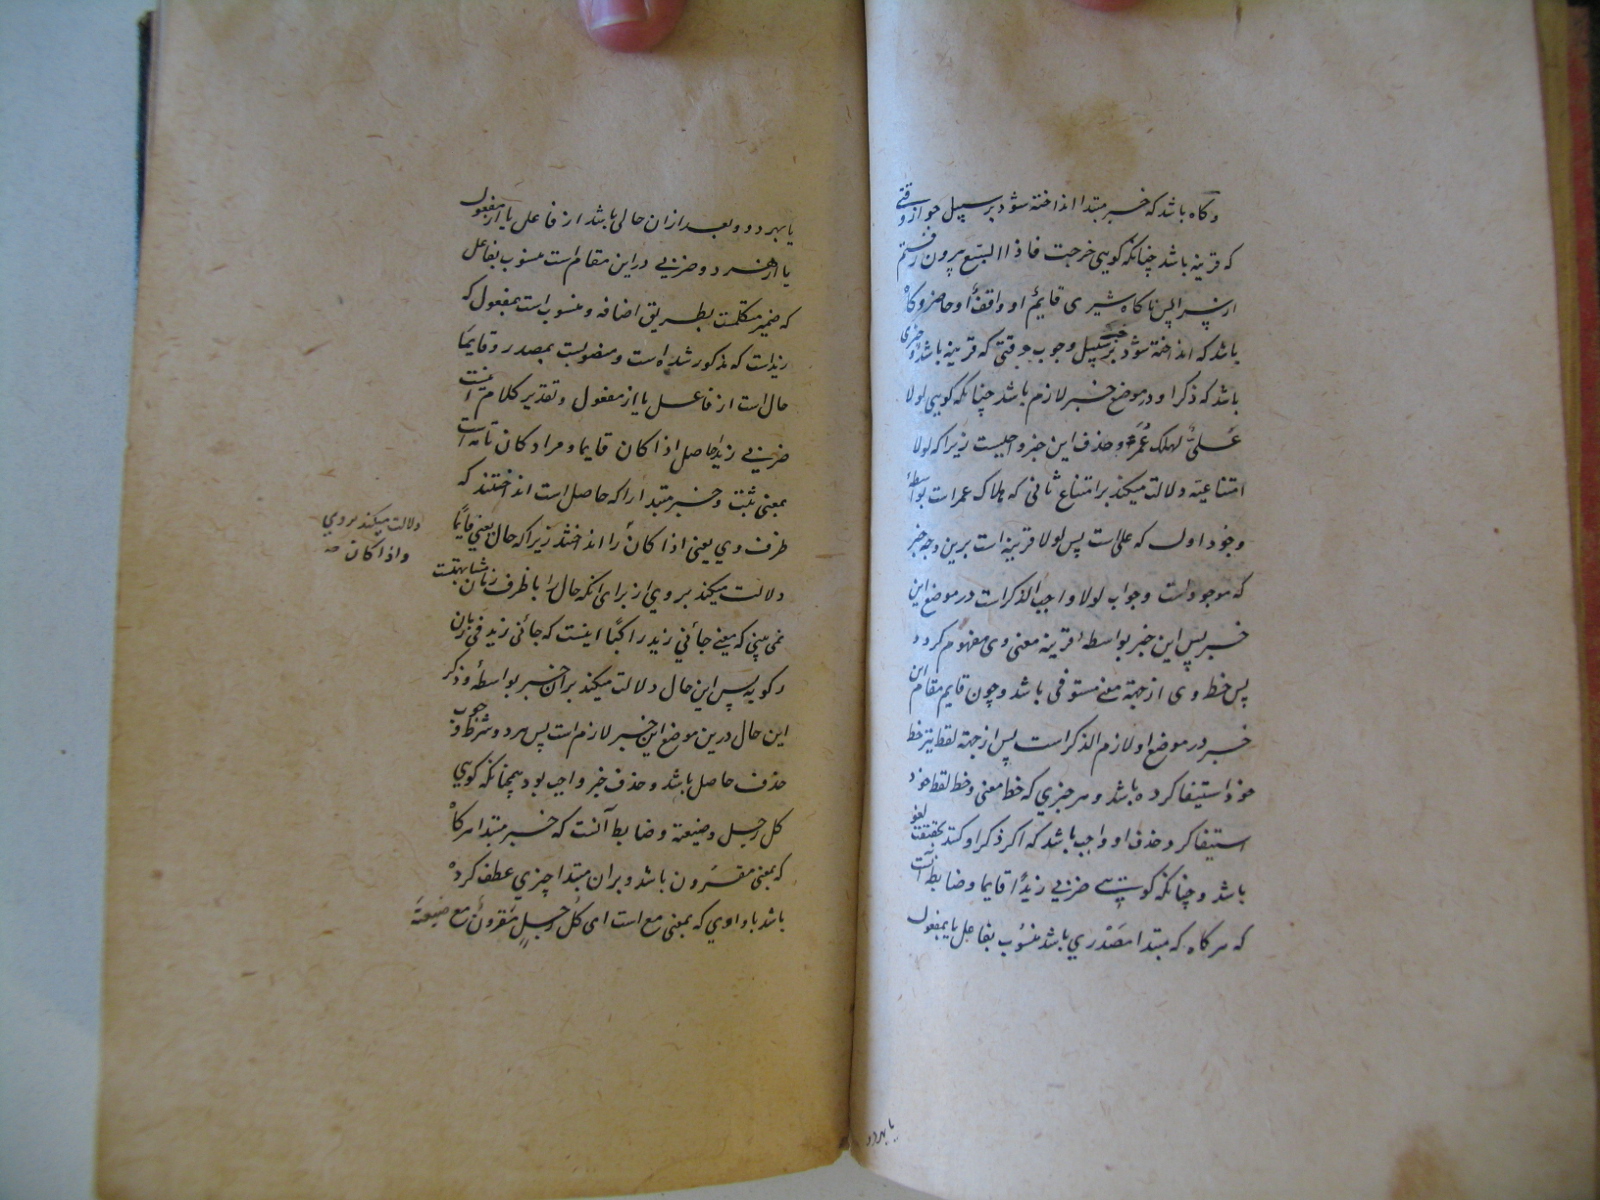 و کاه باشد که خبر مبتدا انداخته شود بر سبیل جواز وقتی
که قرینه باشد چنانکه کویی خرجت فاذا السبع بیرون رفتم
از سرا پس ناکاه شیری قایمٌ او واقفٌ او حاضر و کاه
باشد که انداخته شود خبر بر سبیل وجوب وقتی که قرینه باشد و چیزی
باشد که ذکر او در موضع خبر لازم باشد چنانکه کویی لولا
علیٌّ لهلک عُمَرُ و حذف این خبر واجبست زیرا که لولا
امتناعیه دلالت میکند بر امتناع ثانی که هلاک عمر است بواسطهٔ
وجود اول که علی است پس لولا قرینه است برین وجه خبر
که موجود است و جواب لولا واجب الذکر است در موضع این
خبر پس این خبر بواسطهٔ قرینه معنی وی مفهوم کردد
پس حظ وی از جهة معنی مستوفی باشد و چون قایم مقام این
خبر در موضع او لازم الذکر است پس از جهة لفظ نیز حظ
خود استیفا کرده باشد و هر خبری که حظ معنی و حظ لفظ خود
استیفا کرد حذف او واجب باشد که اکر ذکر او کنند بحقیقت لغو
باشد و چنانکه کویی ضربی زیدًا قایما و ضابط آنست
که هر کاه که مبتدا مصدری باشد منسوب بفاعل یا بمفعول
یا بهر دو
یا بهر دو و بعد از ان حالی باشد از فاعل یا از مفعول
یا از هر دو و ضربی در این مقام است منسوب بفاعل
که ضمیر متکلمست بطریق اضافه و منسوب است بمفعول که
زید است که مذکور شده است و منصوبست بمصدر و قایمًا
حال است از فاعل یا از مفعول و تقدیر کلام اینست
ضربی زیدًا حاصل اذا کان قایما و مراد کان تامه است
بمعنی ثبت و خبر مبتدا را که حاصل است انداختند که
ظرف وی یعنی اذا کان را انداختند زیرا که حال یعنی قایمًا
دلالت میکند بر وی از برای انکه حال را با ظرف زمان مشابهتست
نمی بینی که معنی جائنی زید راکبًا اینست که جائنی زید فی زمان
رکوبه پس این حال دلالت میکند بران خبر بواسطهٔ و ذکر
این حال درین موضع این خبر لازم است پس هر دو شرط وجوب
حذف حاصل باشد و حذف خبر واجب بود همچنانکه کویی
کل رجل و ضیعته و ضابط آنست که خبر مبتدا هر کاه
که بمعنی مقرون باشد و بران مبتدا چیزی عطف کرده
باشد با واوی که بمعنی مع است ای کلُّ رجلٍ مقرونٌ مع ضیعته
دلالت میکند بر وی
و اذا کان صح